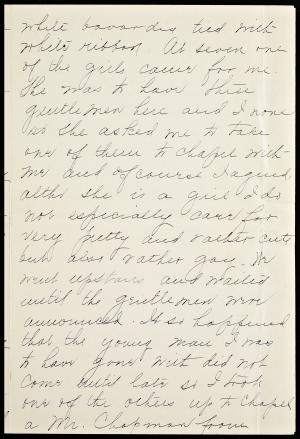 white bouvardia tied with
white ribbon. At seven one
of the girls came for me.
She was to have three
gentlemen here and I none
so she asked me to take
one of them to chapel with
me and of course I agreed,
altho she is a girl I do
not especially care for
very pretty and rather cute
but also rather gay. We
went upstairs and waited
until the gentlemen were
announced. It so happened
that the young man I was
to have gone with did not
come until late so I took
one of the others up to chapel,
a Mr. Chapman from